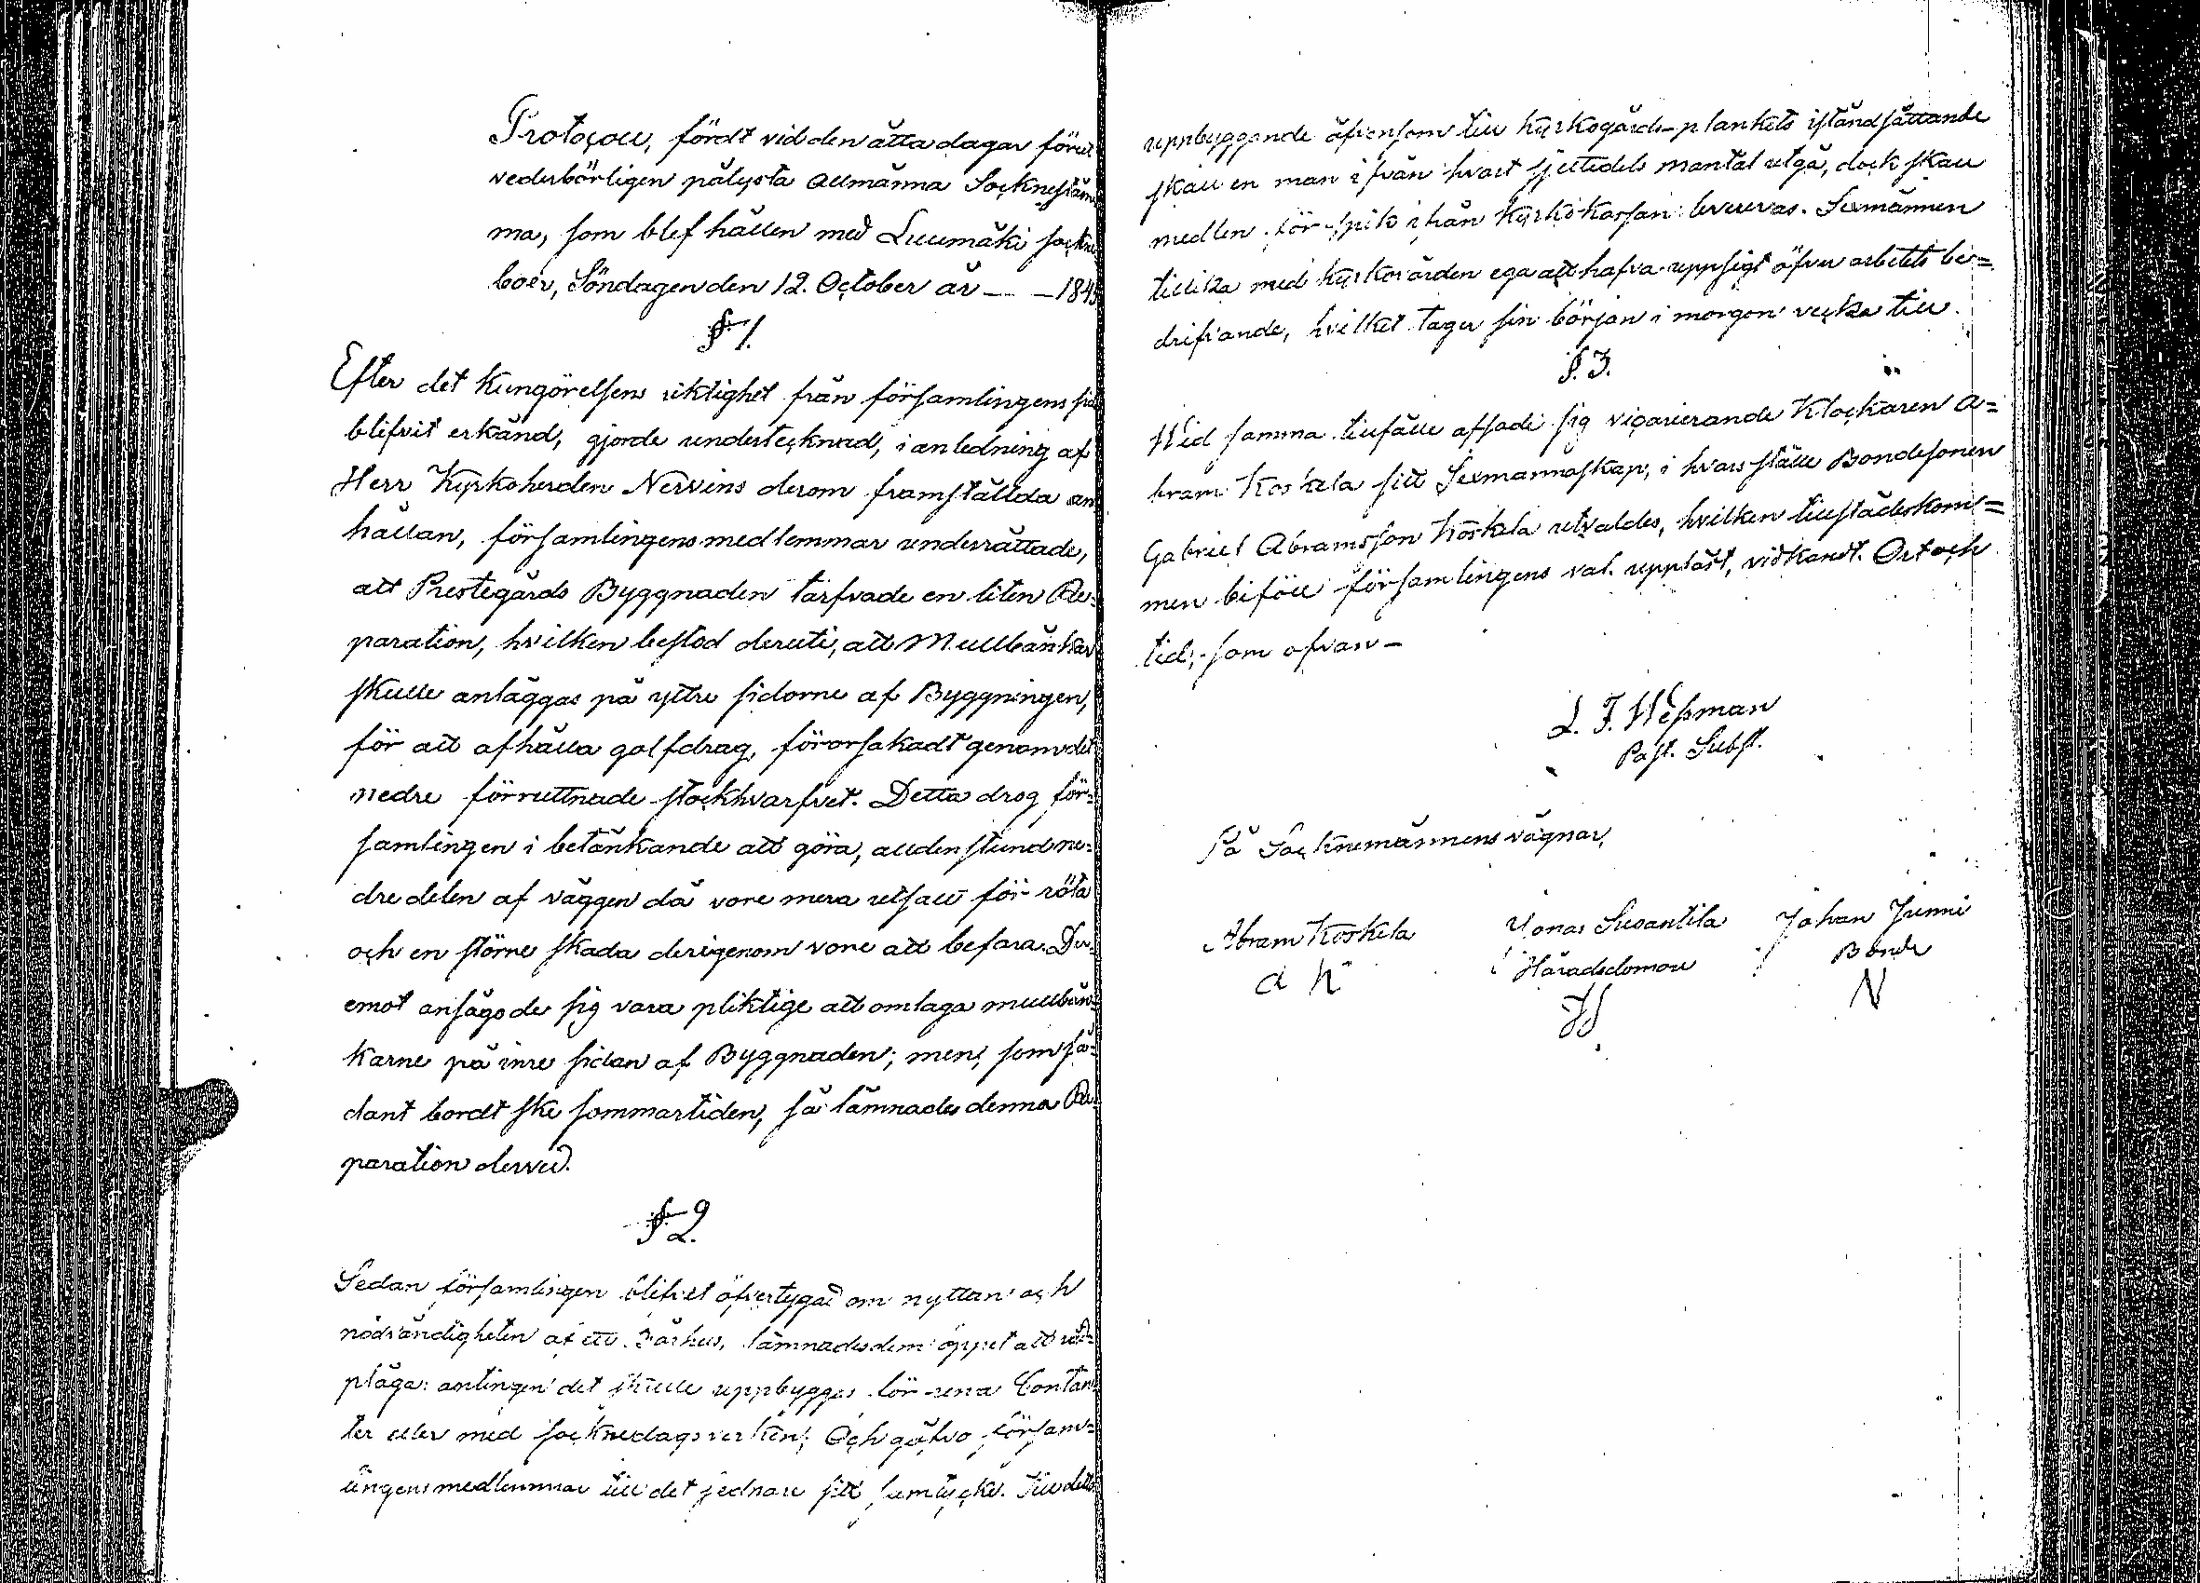 Protocoll, fördt vid den åtta dagar förut
vederbörligen pålysta allmänna Socknestäm
ma, som blef hållen med Luumäki sockne
boer, Söndagen den 12. October år — — 1845
§ 1.
Efter det Kungörelsens riktighet från församlingens sida
blifvit erkänd, gjorde undertecknad, i anledning af
Herr Kyrkoherden Nervins derom framställda an
hållan, församlingens medlemmar underrättade,
att Prestegårds Byggnaden tarfvade en liten Re=
paration, hvilken bestod deruti, att Mullbänkar
skulle anläggas på yttre sidorne af Byggningen,
för att afhålla golfdrag, förorsakadt genom det
nedre förruttnade stockhvarfvet. Detta drog för=
samlingen i betänkande att göra, alldenstund ne=
dre delen af väggen då vore mera utsatt för röta
och en större skada derigenom vore att befara. Der=
emot ansågo de sig vara pliktige att omlaga mullbän=
karne på inre sidan af Byggnaden; men, som så=
dant bordt ske sommartiden, så lämnades denna Re=
paration dervid.
§ 2.
Sedan församlingen blifvit öfvertygad om nyttan och
nödvändigheten af ett Bårhus, lämnades dem öppet att råd=
pläga: antingen det skulle uppbyggas för rena Contan
ter eller med socknedagsverken; Och gåfvo försam=
lingens medlemmar till det sednare sitt samtycke. Till detta
uppbyggande äfvensom till kyrkogårds-plankets iståndsättande
skall en man ifrån hvart sjettedels mantal utgå, dock skall
medlen för spik ifrån Kyrkokassan levereras. Sexmännen
tillika med kyrkovärden ega att hafva uppsigt öfver arbetets be=
drifvande, hvilket tager sin början i morgon vecka till.
§. 3.
Wid samma tillfälle afsade sig vicarierande Klockaren A=
bram Koskela sitt Sexmannaskap, i hvars ställe Bondesonen
Gabriel Abramsson Koskela utvaldes, hvilken tillstädeskom=
men biföll församlingens val. uppläst, vidkändt. Ort och
tid, som ofvan —
L. F. Wessman
Past. Subst.
På Socknemännens vägnar,
Abram Koskela Jonas Suoantila Johan Junni
Häradsdomare Bonde
A K N